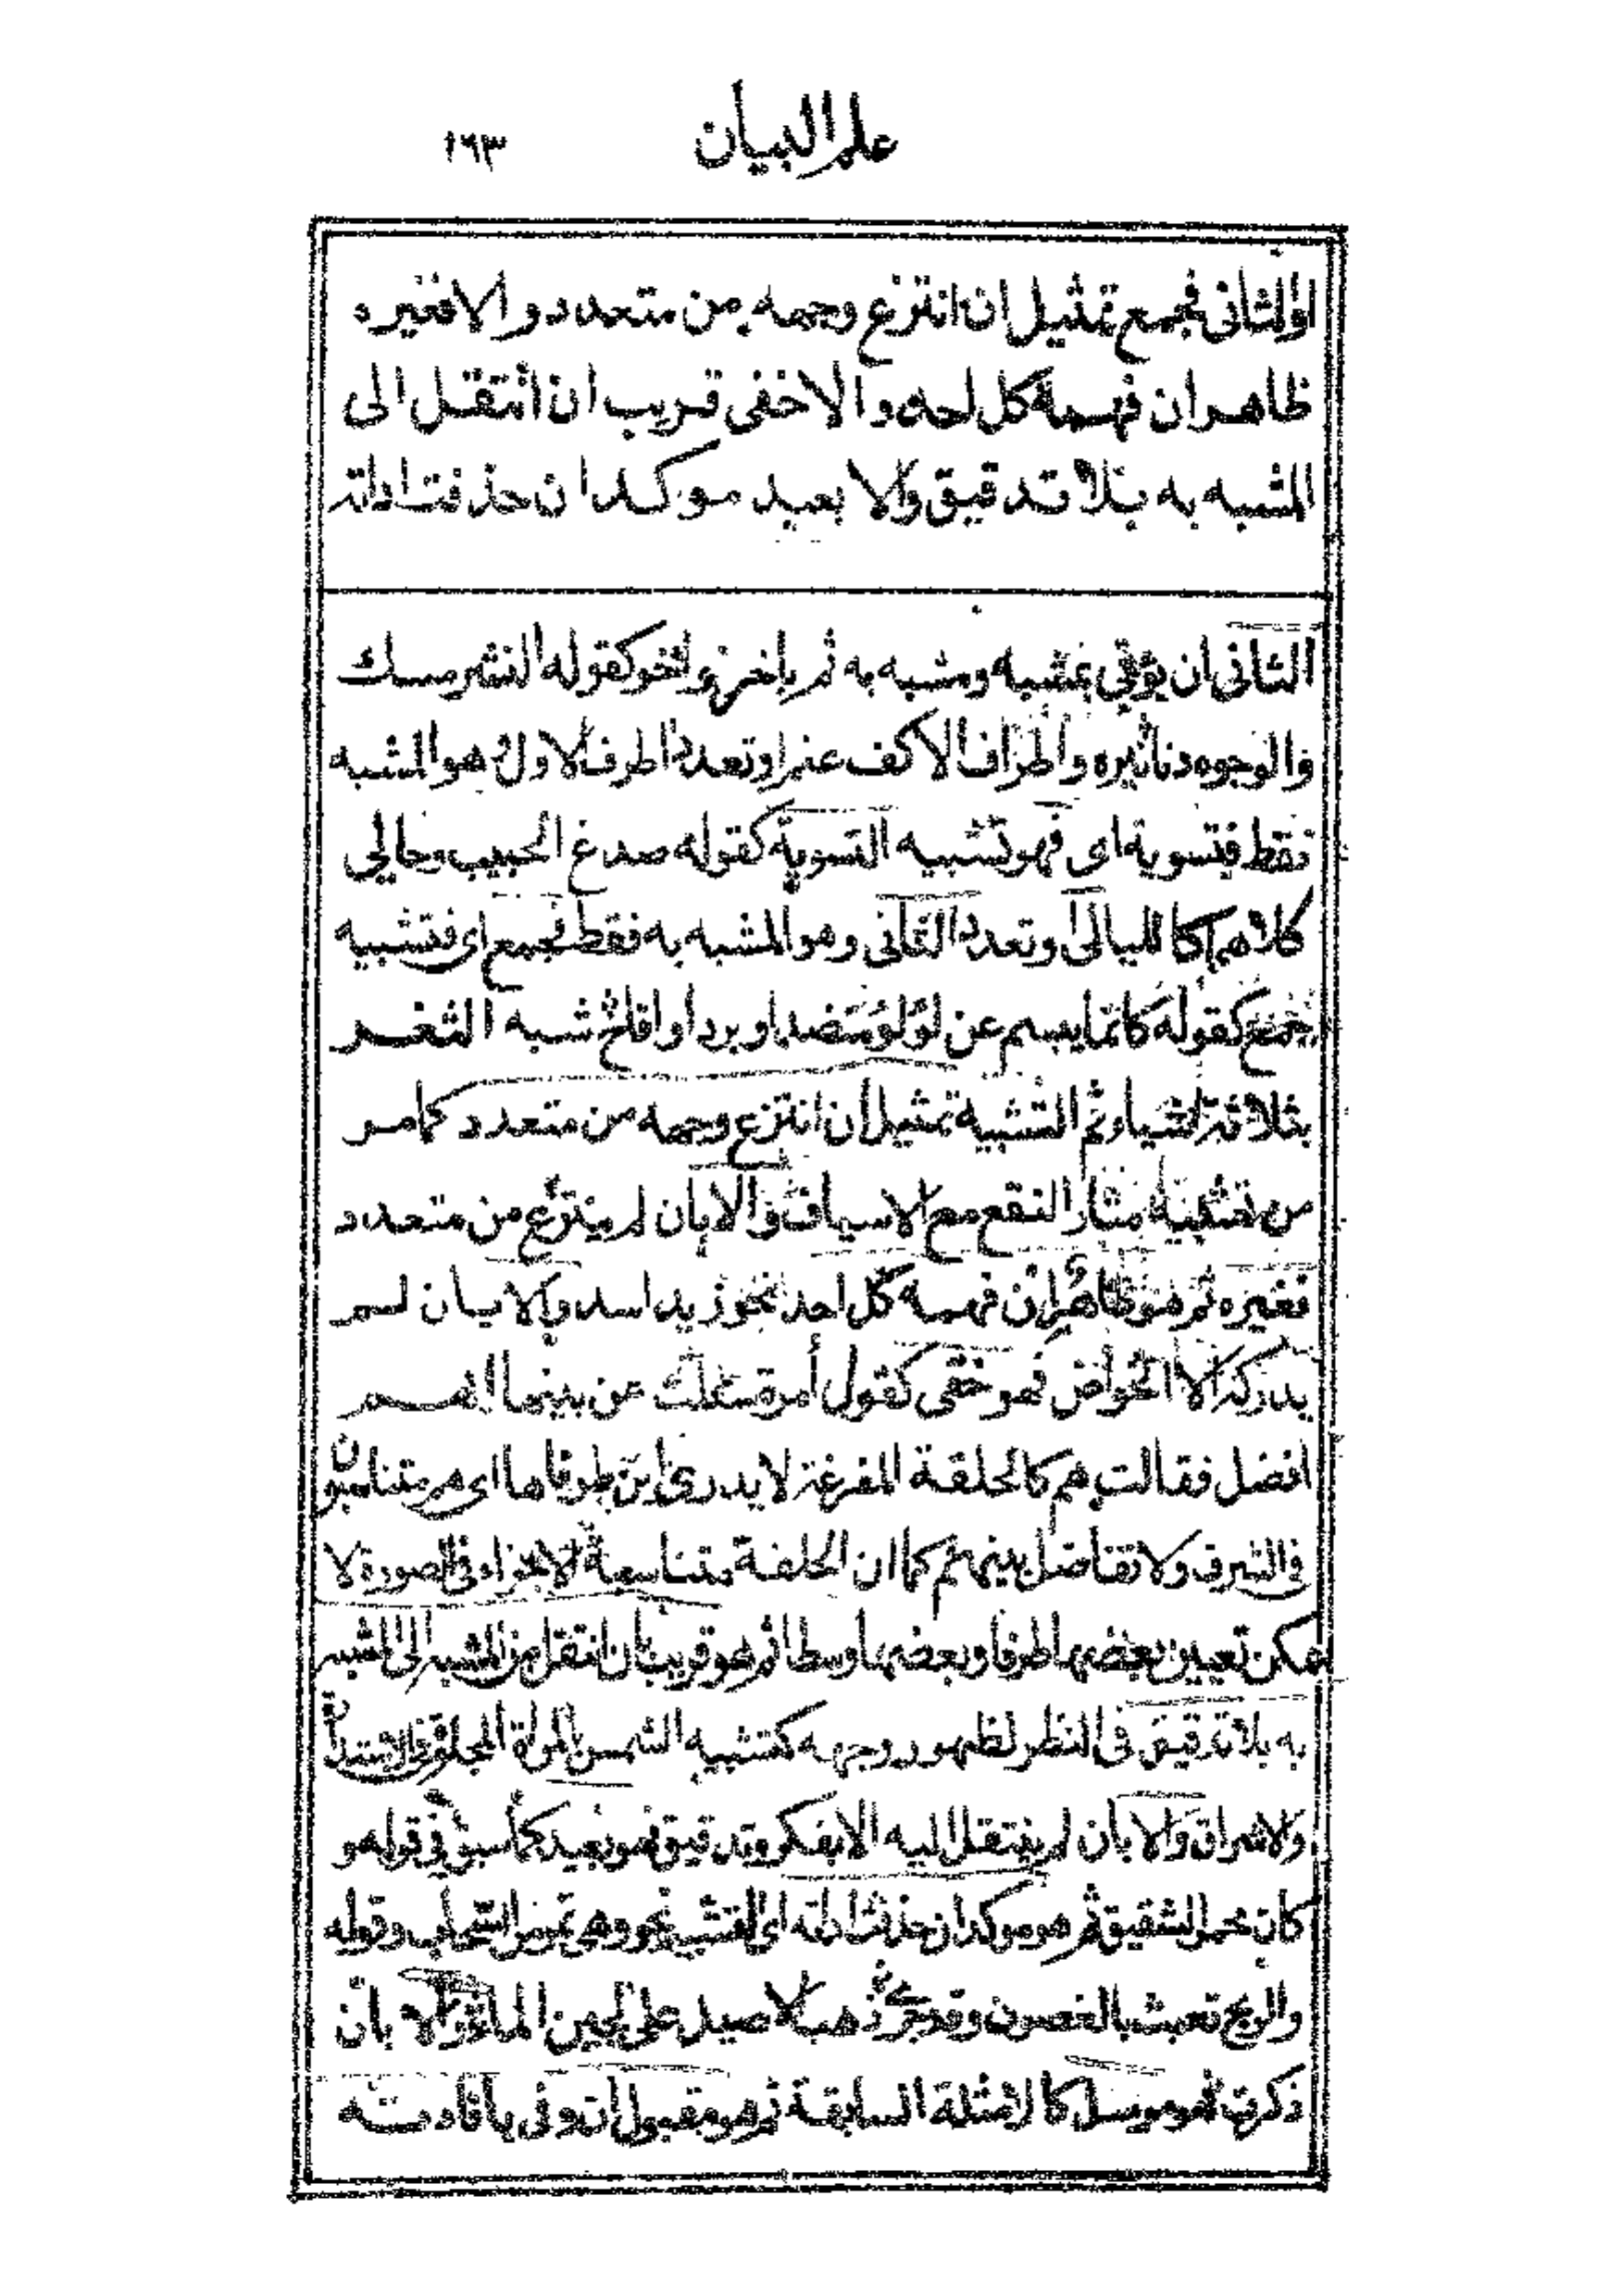 علم البيان ١٦٣
اوالثانى فجمع تمثيل ان انتزع وجهه من متعدد والا فغيره
ظاهر ان فهمه كل احد والا خفى قريب ان انتقل الى
المشبه به بلا تدقيق والا بعيد موكد ان حذفت اداته
الثانى ان يؤتى بمشبه ومشبه به ثم باخر واخر نحو كقوله النشر مسك
والوجوه دنانير واطراف الاكف عنم او تعدد طرفه الاول هو المشبه
فقط فتسوية اى فهو تشبيه التسوية كقوله صدغ الحبيب وحالي
كلاهما كالليالى او تعدد الثانى وهو المشبه به فقط فجمع اى فتشبيه
جمع كقوله كانما يبسم عن لؤلؤ منضد او برد او اقاح شبه الثغر
بثلاثة اشياء ثم التشبيه تمثيل ان انتزع وجهه من متعدد كما مر
من تشبيه مثار النقع مع الاسياف والا بان لم ينتزع من متعدد
فغيره ثم هو ظاهر ان فهمه كل احد نحو زيد اسد والا بان لم
يدركه الا الخواص فهو خفى كقول امرءة سئلت عن بنيها ايهم
افضل فقالت هم كالحلقة المفرغة لا يدرى اين طرفاها اى هم متناسبون
فى الشرف ولا تفاضل بينهم كما ان الحلقة متناسبة الاجزاء فى الصورة لا
يمكن تعيين بعضها طرفا وبعضها وسطا ثم هو قريب بان انتقل من المشبه الى المشبه
به بلا تدقيق فى النظر لظهور وجهه كتشبيه الشمس بالمراة المجلوة فى الاستدارة
والاشراق والا بان لم ينتقل اليه الا بفكر وتدقيق فهو بعيد كما سبق فى قوله و
كان محمر الشقيق ثم هو موكد ان حذفت اداته اى التشبيه نحو وهى تمر مر السحاب وقوله
والريح تعبث بالغصون وقد جرى ذهب الاصيل على لجين الماء والا بان
ذكرت فهو مرسل كالامثلة السابقة ثم هو مقبول ان وفى بافادته